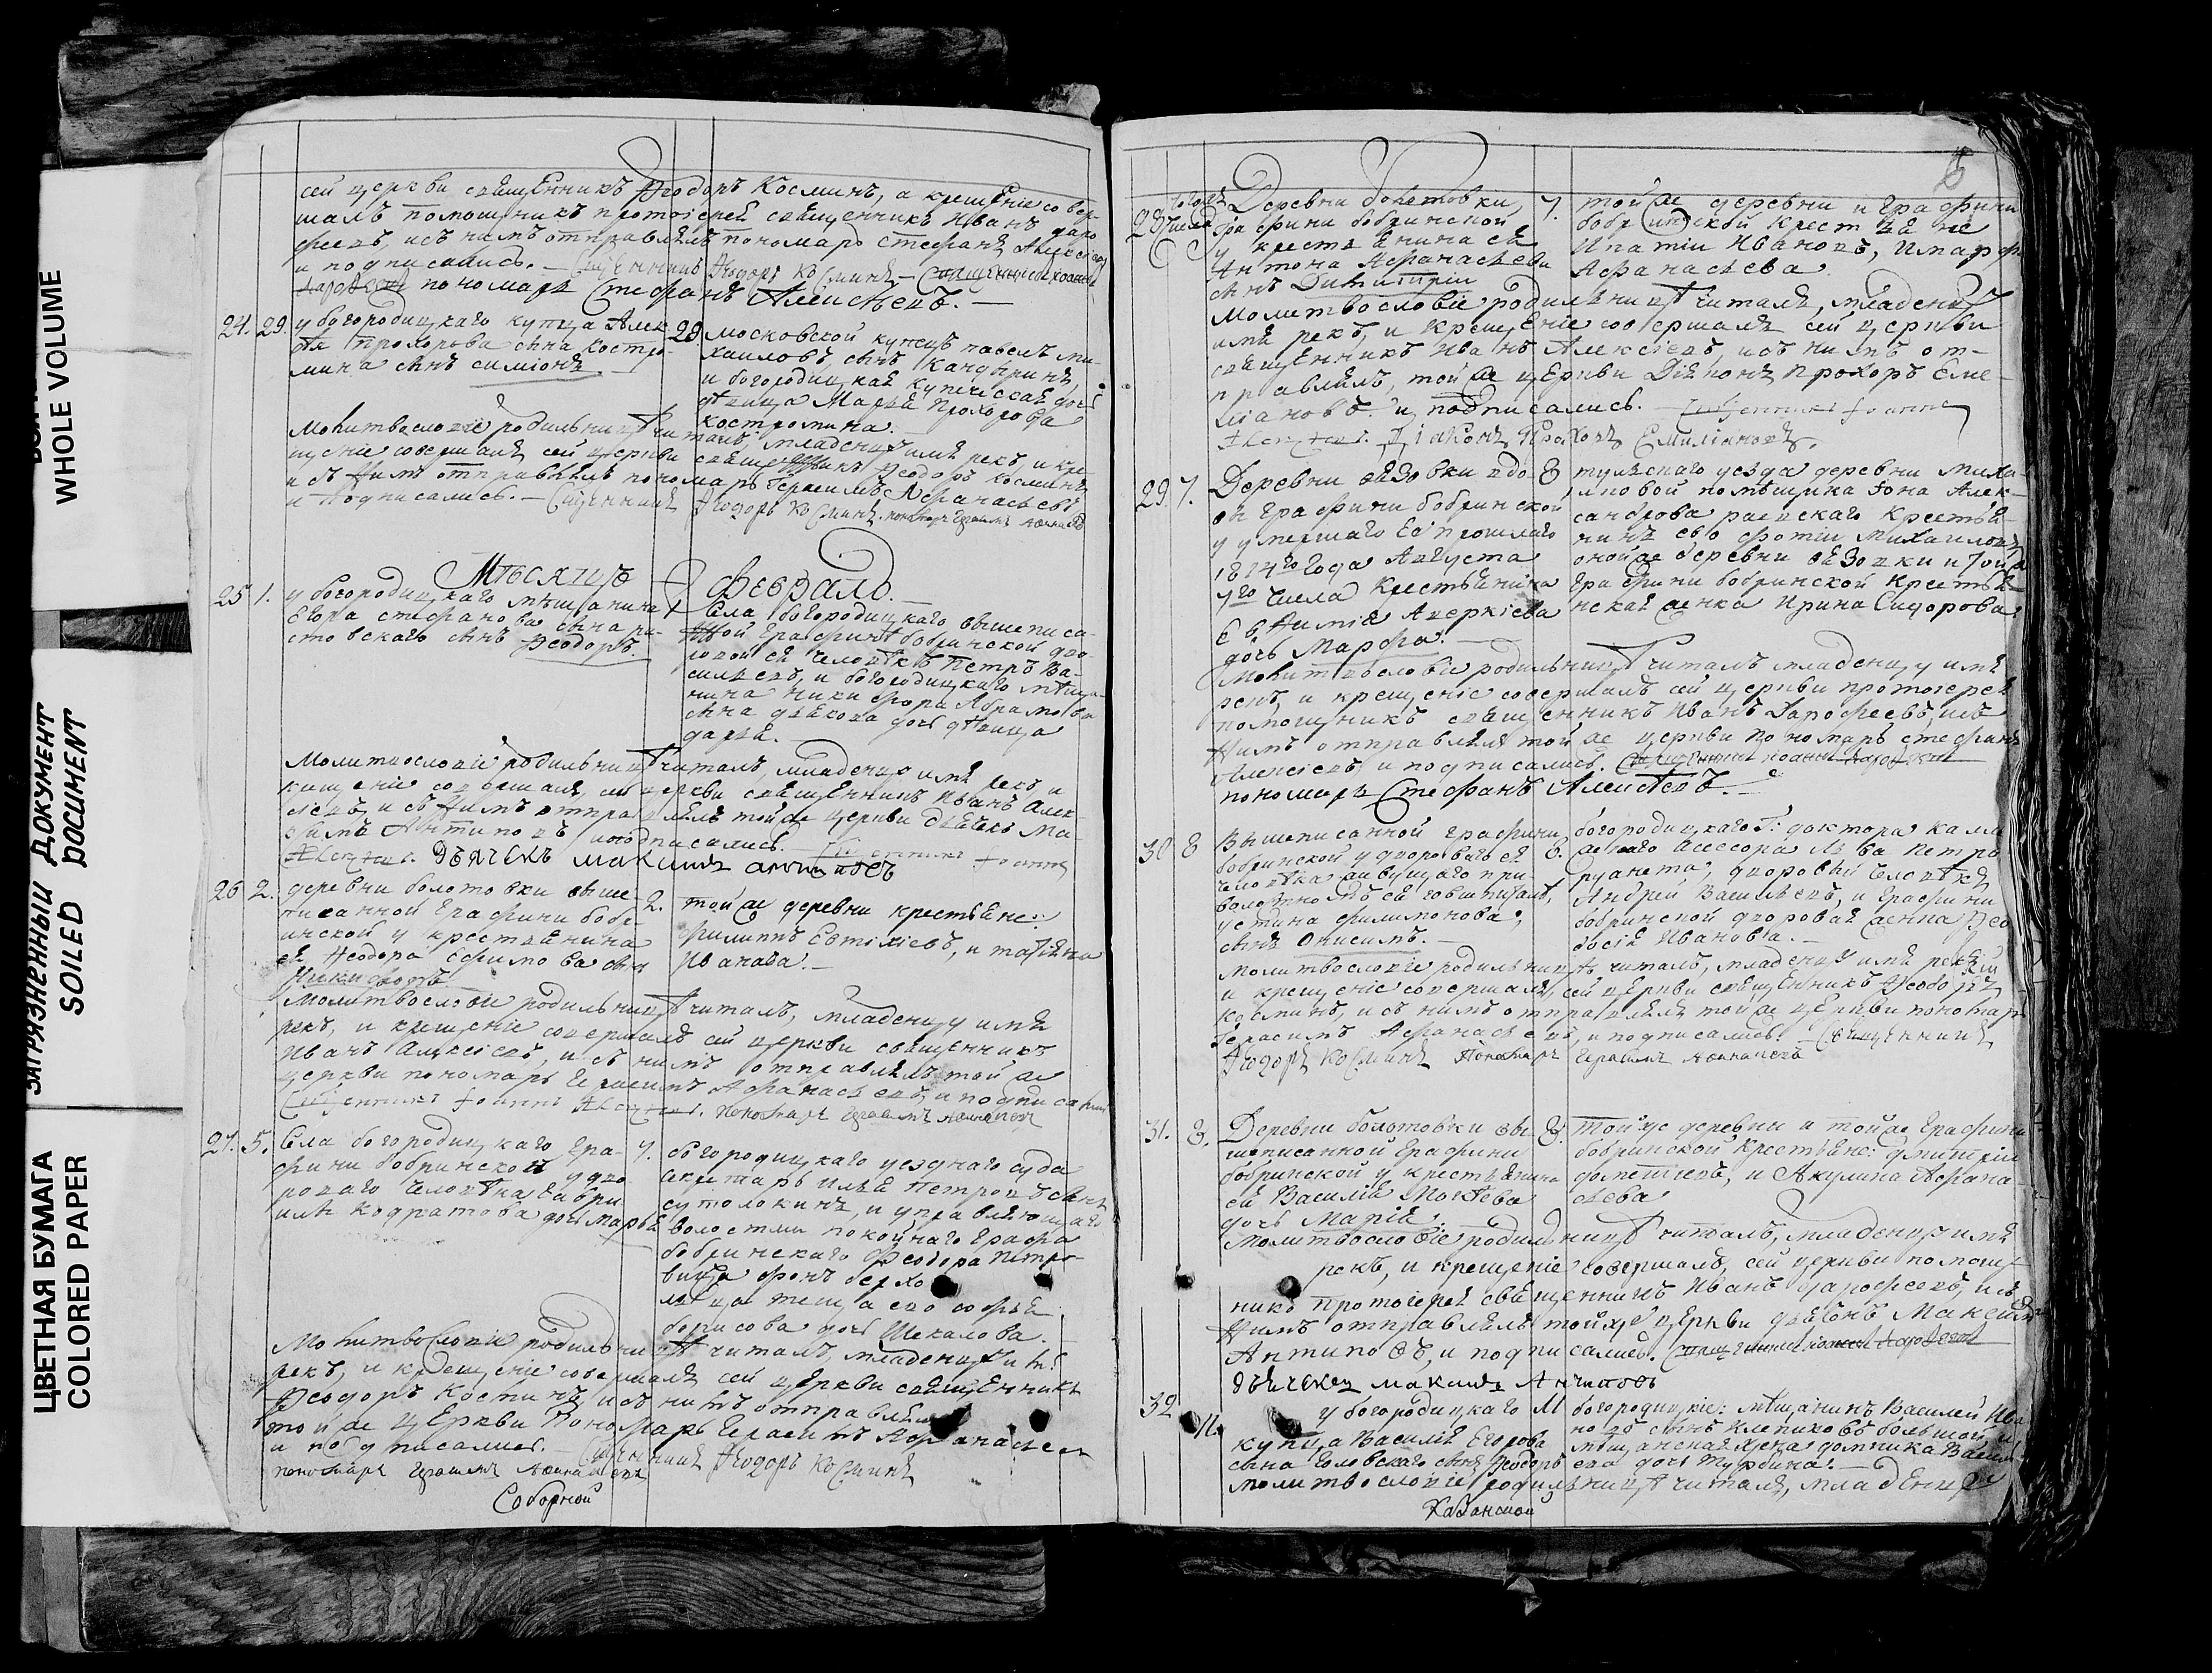 сей церкви священникъ Феодоръ Косминъ, а крещеніе совер-
шалъ помощникъ протоіерей священникъ Иванъ Даро-
феевъ, исъ нимъ отправлялъ пономарь Стефанъ Алексіевъ
и подписались. — Священникъ Феодоръ Косминъ — Священникъ Иоаннъ
Дарофеевъ пономарь Стефанъ Алексѣевъ. —
24. 29. у богородицкаго купца Алек-
сѣя Прохорова сына Костро-
мина сынъ Симіонъ.
29. московской купецъ павелъ ми-
хаиловъ, сынъ Кандыринъ,
и богородицкая купеческая дочь
дѣвица Марья Прохорова
Костромина.
Молитвословіе родильницѣ читалъ, младенцу имя рекъ, и кре-
щеніе совершалъ сей церкви священникъ Феодоръ Косминъ
исъ нимъ отправлялъ пономарь Герасимъ Афанасьевъ
и подписались. — Священникъ Феодоръ Косминъ. пономарь Герасимъ Афанасьевъ
Мѣсяцъ Февраль.
25 1. у богородицкаго мѣщанина
Егора стефанова сына
стовскаго сынъ Феодоръ.
1. Села богородицкаго вышеписа-
ной графини бобринской дво-
ровой ея человѣкъ Петръ Ва-
сильевъ, и богородицкаго мѣща-
нина никифора Абрамова
сына дьякова дочь дѣвица
дарья.
Молитвословіе родильницѣ читалъ, младенцу имя рекъ, и
крщеніе совершалъ, сей церкви священникъ Иванъ Алек-
сіевъ, и съ нимъ отправлялъ той же церкви дьячекъ Ма-
ксимъ Антиповъ и подписались. Священникъ Іоаннъ
Алексѣевъ. Дьячекъ Максимъ Антиповъ
26 2. деревни болотовки выше-
писанной графини бобр-
инской у крестьянина
ея Феодора Ефимова сынъ
Никифоръ
2. той же деревни крестьяне:
Филиппъ Евтихіевъ, и татіяна
Иванова. —
Молитвословіе родильницѣ читалъ, младенцу имя
рекъ, и крещеніе совершалъ сей церкви священникъ
Иванъ Алексіевъ, и съ нимъ отправлялъ той же
церкви пономарь Герасимъ Афанасьевъ и подписались
Священникъ Іоаннъ Алексѣевъ. пономарь Герасимъ Афанасьевъ
27. 5. Села богородицкаго гра-
фини бобринской у дво-
роваго человѣка Гаври-
илы Кодратова дочь Марья
7. богородицкаго уезднаго суда
секретарь Илья Петровъ сынъ
сутолокинъ, и управляющаго
волостми покойнаго графа
бобринскаго Феодора Петро-
вича фонъ берхо
льца теща его софья
борисова дочь Шекалова.
Молитвословіе родильницѣ читалъ, младенцу имя
рекъ, и крещеніе совершалъ сей церкви священникъ
Феодоръ Косминъ, исъ нимъ отправлялъ
той же церкви Пономарь Герасимъ Афанасьевъ
и подписались. — Священникъ Феодоръ Косминъ
пономарь Герасимъ Афанасьевъ
Соборной
28 7 числа Деревни болотовки,
графини бобринской
у крестьянина ея
Антона Афанасьева
сынъ Димитрій
7. той же деревни и графини
бобринской крестьяне
Ипатій Ивановъ, и марфа
Афанасьева.
Молитвословіе родильницѣ читалъ, младенцу
имя рекъ, и крещеніе совершалъ сей церкви
священникъ Иванъ Алексіевъ, исъ нимъ от-
правлялъ, той же церкви Діяконъ Прохоръ Еме-
ліановъ. и подписались. — Священникъ Іоаннъ
Алексѣевъ. Діаконъ Прохоръ Емиліановъ.
29. 7. Деревни вязовки вдо-
вы графини бобринской
у умершаго ... прошлаго
1814го года Августа
7го числа Крестьянина
Евфимія Аверкіева
дочь Марфа.
8 тулскаго уезда деревни миха-
лковой помѣщика Іона Алек-
сандрова раевскаго Крестья-
нинъ ево фотій Михаиловъ,
оной же деревни вязовки и той же
графини бобринской Крестья-
нская женка Ирина Сидорова
Молитвословіе родильницѣ читалъ младенцу имя
рекъ, и крещеніе совершалъ сей церкви протоіерея
помощникъ священникъ Иванъ Дарофеевъ, исъ
нимъ отправлялъ той же церкви пономарь стефанъ
Алексіевъ и подписались. Священникъ Иоаннъ Дарофеевъ
пономарь Стефанъ Алексѣевъ. —
30 8 Вышеписанной графини
бобринской у двороваго ея
человѣка живущаго при
волостномъ ея гошпиталѣ,
устина филимонова,
сынъ Онисимъ. —
8. богородицкаго Г: доктора калле-
жскаго Асессора Льва Петро
руанета, дворовый человѣкъ
Андрей Васильевъ, и графини
бобринской дворовая женка Фео-
досія Иванова. —
Молитвословіе родильницѣ читалъ, младенцу имя рекъ,
и крещеніе совершалъ, сей церкви священникъ Феодоръ
косминъ, и съ нимъ отправлялъ той же церкви пономарь
Герасимъ Афанасьевъ, и подписались. — Священникъ
Феодоръ Косминъ Пономарь Герасимъ Афанасьевъ
31. 8. Деревни болотовки вы-
шеписанной графини
бобринской у крестьянина
ея Василія Мокѣева
дочь Марія.
8. Той же деревни и той же графини
бобринской Крестьяне: димитрій
фометіевъ, и Акулина Афана-
сьева
Молитвословіе родильницѣ читалъ, младенцу имя
рекъ, и крещеніе совершалъ, сей церкви помощ-
никъ Протоіерея священникъ Иванъ дарофеевъ, исъ
нимъ отправлялъ той же церкви дьячекъ Максимъ
Антиповъ, и подписались. Священникъ Иоаннъ Дарофеевъ
Дьячекъ Максимъ Антиповъ
32 11. у богородицкаго
купца Василія Егорова
сына Головскаго сынъ Феодоръ
11 богородицкіе: мѣщанинъ Василей Ива-
новъ сынъ Клепиковъ большой и
мѣщанская жена домника Васил-
ева дочь Турбина. —
молитвословіе родильницѣ читалъ, младенцу
Казанской